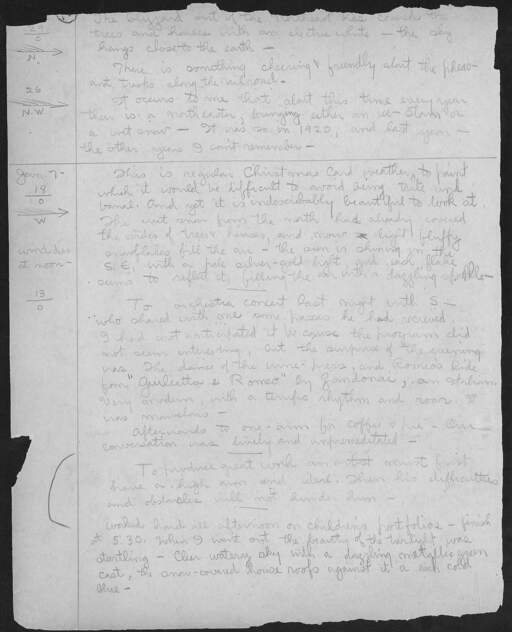 The blizzard out of the northeast has covered the
trees and houses with an electric white - the sky
hangs close to the earth -
N.
There is something cheering & friendly about the pheas-
ant tracks along the railroad.
26
N.W
It occurs to me that about this time every year
there is a northeaster, bringing either an ice-storm or
a wet snow - It was so in 1920, and last year -
the other years I can't remember -
Jan. 7-
18
10
W
This is regular Christmas card weather, to paint
which it would be difficult to avoid being trite and
banal. And yet it is indescribably beautiful to look at.
The wet snow from the north had already covered
the sides of trees & houses, and now light fluffy
snowflakes fill the air - the sun is shining in the
S.E. with a pale silver-gold light and each flake
seems to reflect it, filling the air with a dazzling sparkle-
wind dies
at noon-
13
0
To orchestra concert last night with S-
who shared with me some passes he had received.
I had not anticipated it because the program did
not seem interesting, but the surprise of the evening
was The dance of the and Romeo's Ride
from "Giulietta e Romeo" by Zandonai, an Italian
very modern, with a terrific rhythm and roar. It
was marvelous -
Afterwards to one-arm for coffee & pie - Our
conversation was lively and unpremeditated -
To produce great work an artist must first
have a high aim and ideal. Then his difficulties
and obstacles will not hinder him -
Worked hard all afternoon on children's portfolios - finish
at 5.30. When I went out the beauty of the twilight was
startling - Clear watery sky with a dazzling metallic green
cast, the snow-covered house roofs against it a rich cold
blue -